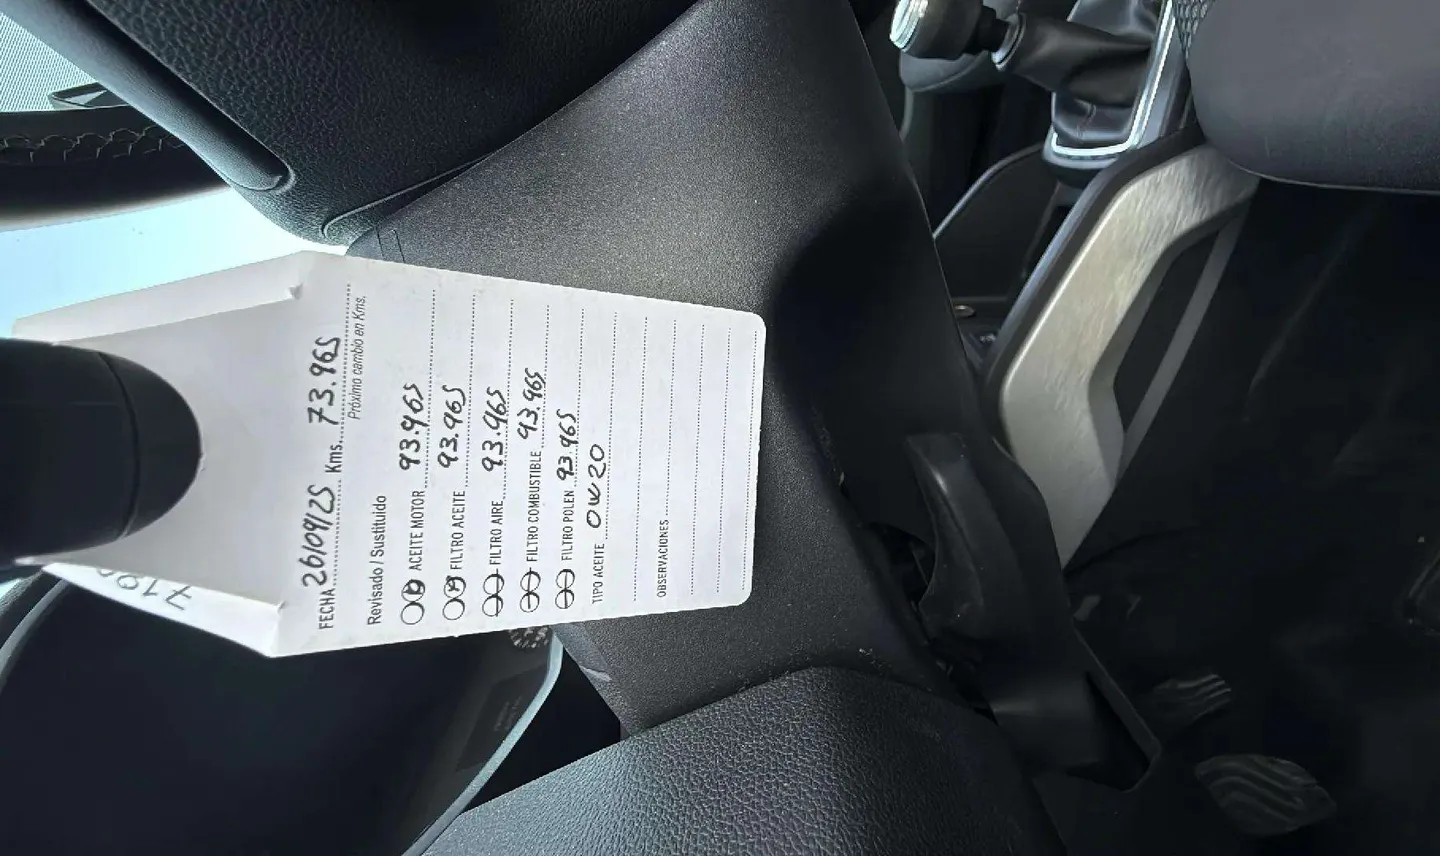 FECHA 26/09/25 Kms. 73.965
Próximo cambio en Kms.
Revisado / Sustituido
ACEITE MOTOR 93.965
FILTRO ACEITE 93.965
FILTRO AIRE 93.965
FILTRO COMBUSTIBLE 93.965
FILTRO POLEN 93.965
TIPO ACEITE 0W20
OBSERVACIONES